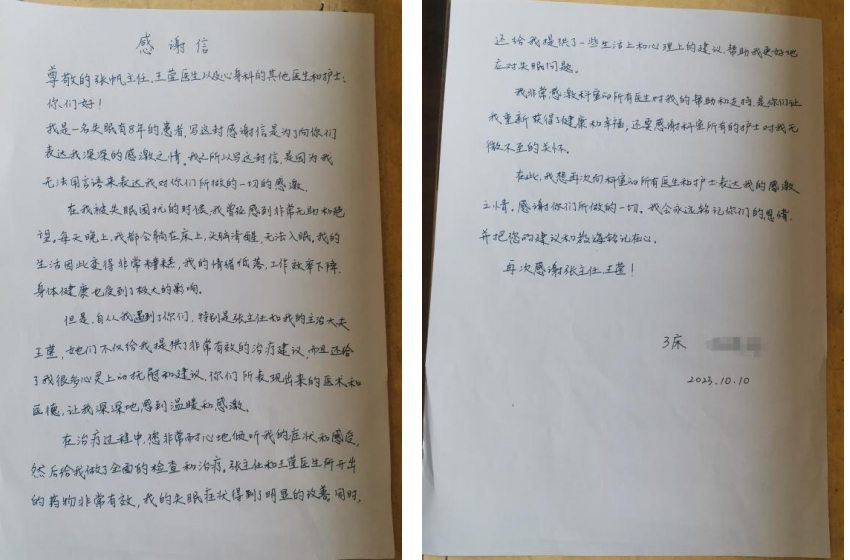 感谢信
尊敬的张帆主任,王萱医生以及心身科的其他医生和护士:
你们好!
我是一名失眠有8年的患者,写这封感谢信是为了向你们
表达我深深的感激之情。我之所以写这封信,是因为我
无法用言语来表达我对你们所做的一切的感激。
在我被失眠困扰的时候,我曾经感到非常无助和绝
望。每天晚上,我都会躺在床上,头脑清醒,无法入眠。我的
生活因此变得非常糟糕,我的情绪低落,工作效率下降,
身体健康也受到了极大的影响。
但是,自从我遇到了你们,特别是张主任和我的主治大夫
王萱,她们不仅给我提供了非常有效的治疗建议,而且还给
了我很多心灵上的抚慰和建议。你们所表现出来的医术和
医德,让我深深地感到温暖和感激。
在治疗过程中,您非常耐心地倾听我的症状和感受,
然后给我做了全面的检查和治疗。张主任和王萱医生所开出
的药物非常有效,我的失眠症状得到了明显的改善。同时,
还给我提供了一些生活上和心理上的建议,帮助我更好地
应对失眠问题。
我非常感激科室的所有医生对我的帮助和支持,是你们让
我重新获得了健康和幸福,还要感谢科室所有的护士对我无
微不至的关怀。
在此,我想再次向科室的所有医生和护士表达我的感激
之情。感谢你们所做的一切。我会永远铭记你们的恩情,
并把您的建议和教诲铭记在心。
再次感谢张主任,王萱!
3床
2023.10.10